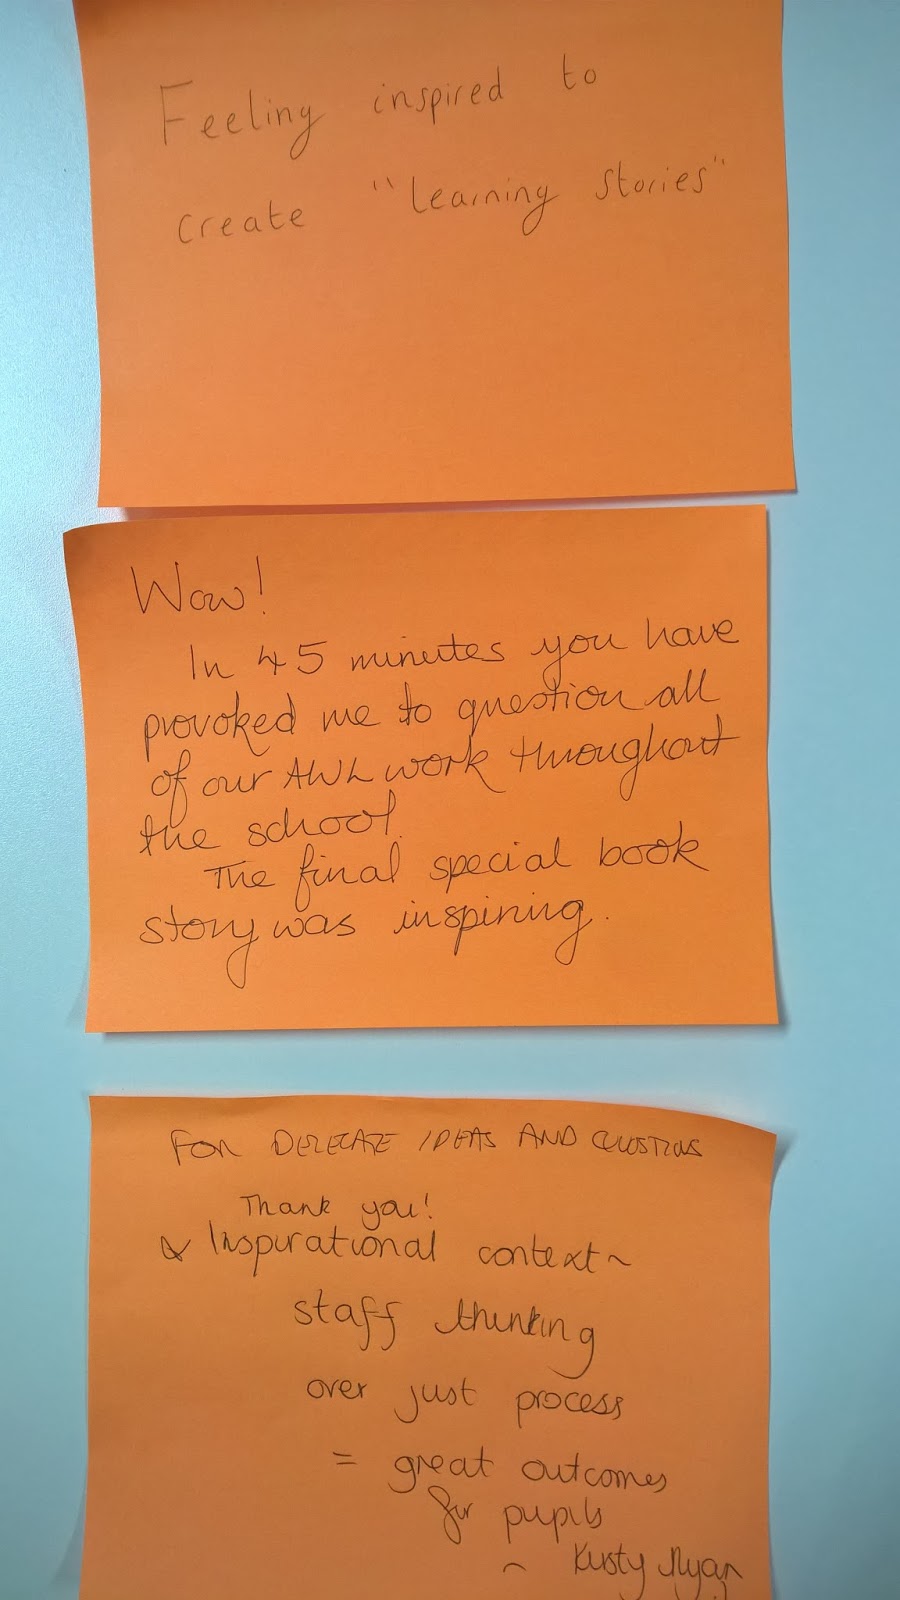 Feeling inspired to
create "learning stories"
Wow!
In 45 minutes you have
provoked me to question all
of our AWL work throughout
the school.
The final special book
story was inspiring.
FOR DELEGATE IDEAS AND QUESTIONS
Thank you!
Inspirational context ~
staff thinking
over just process
= great outcomes
for pupils
~ Kirsty